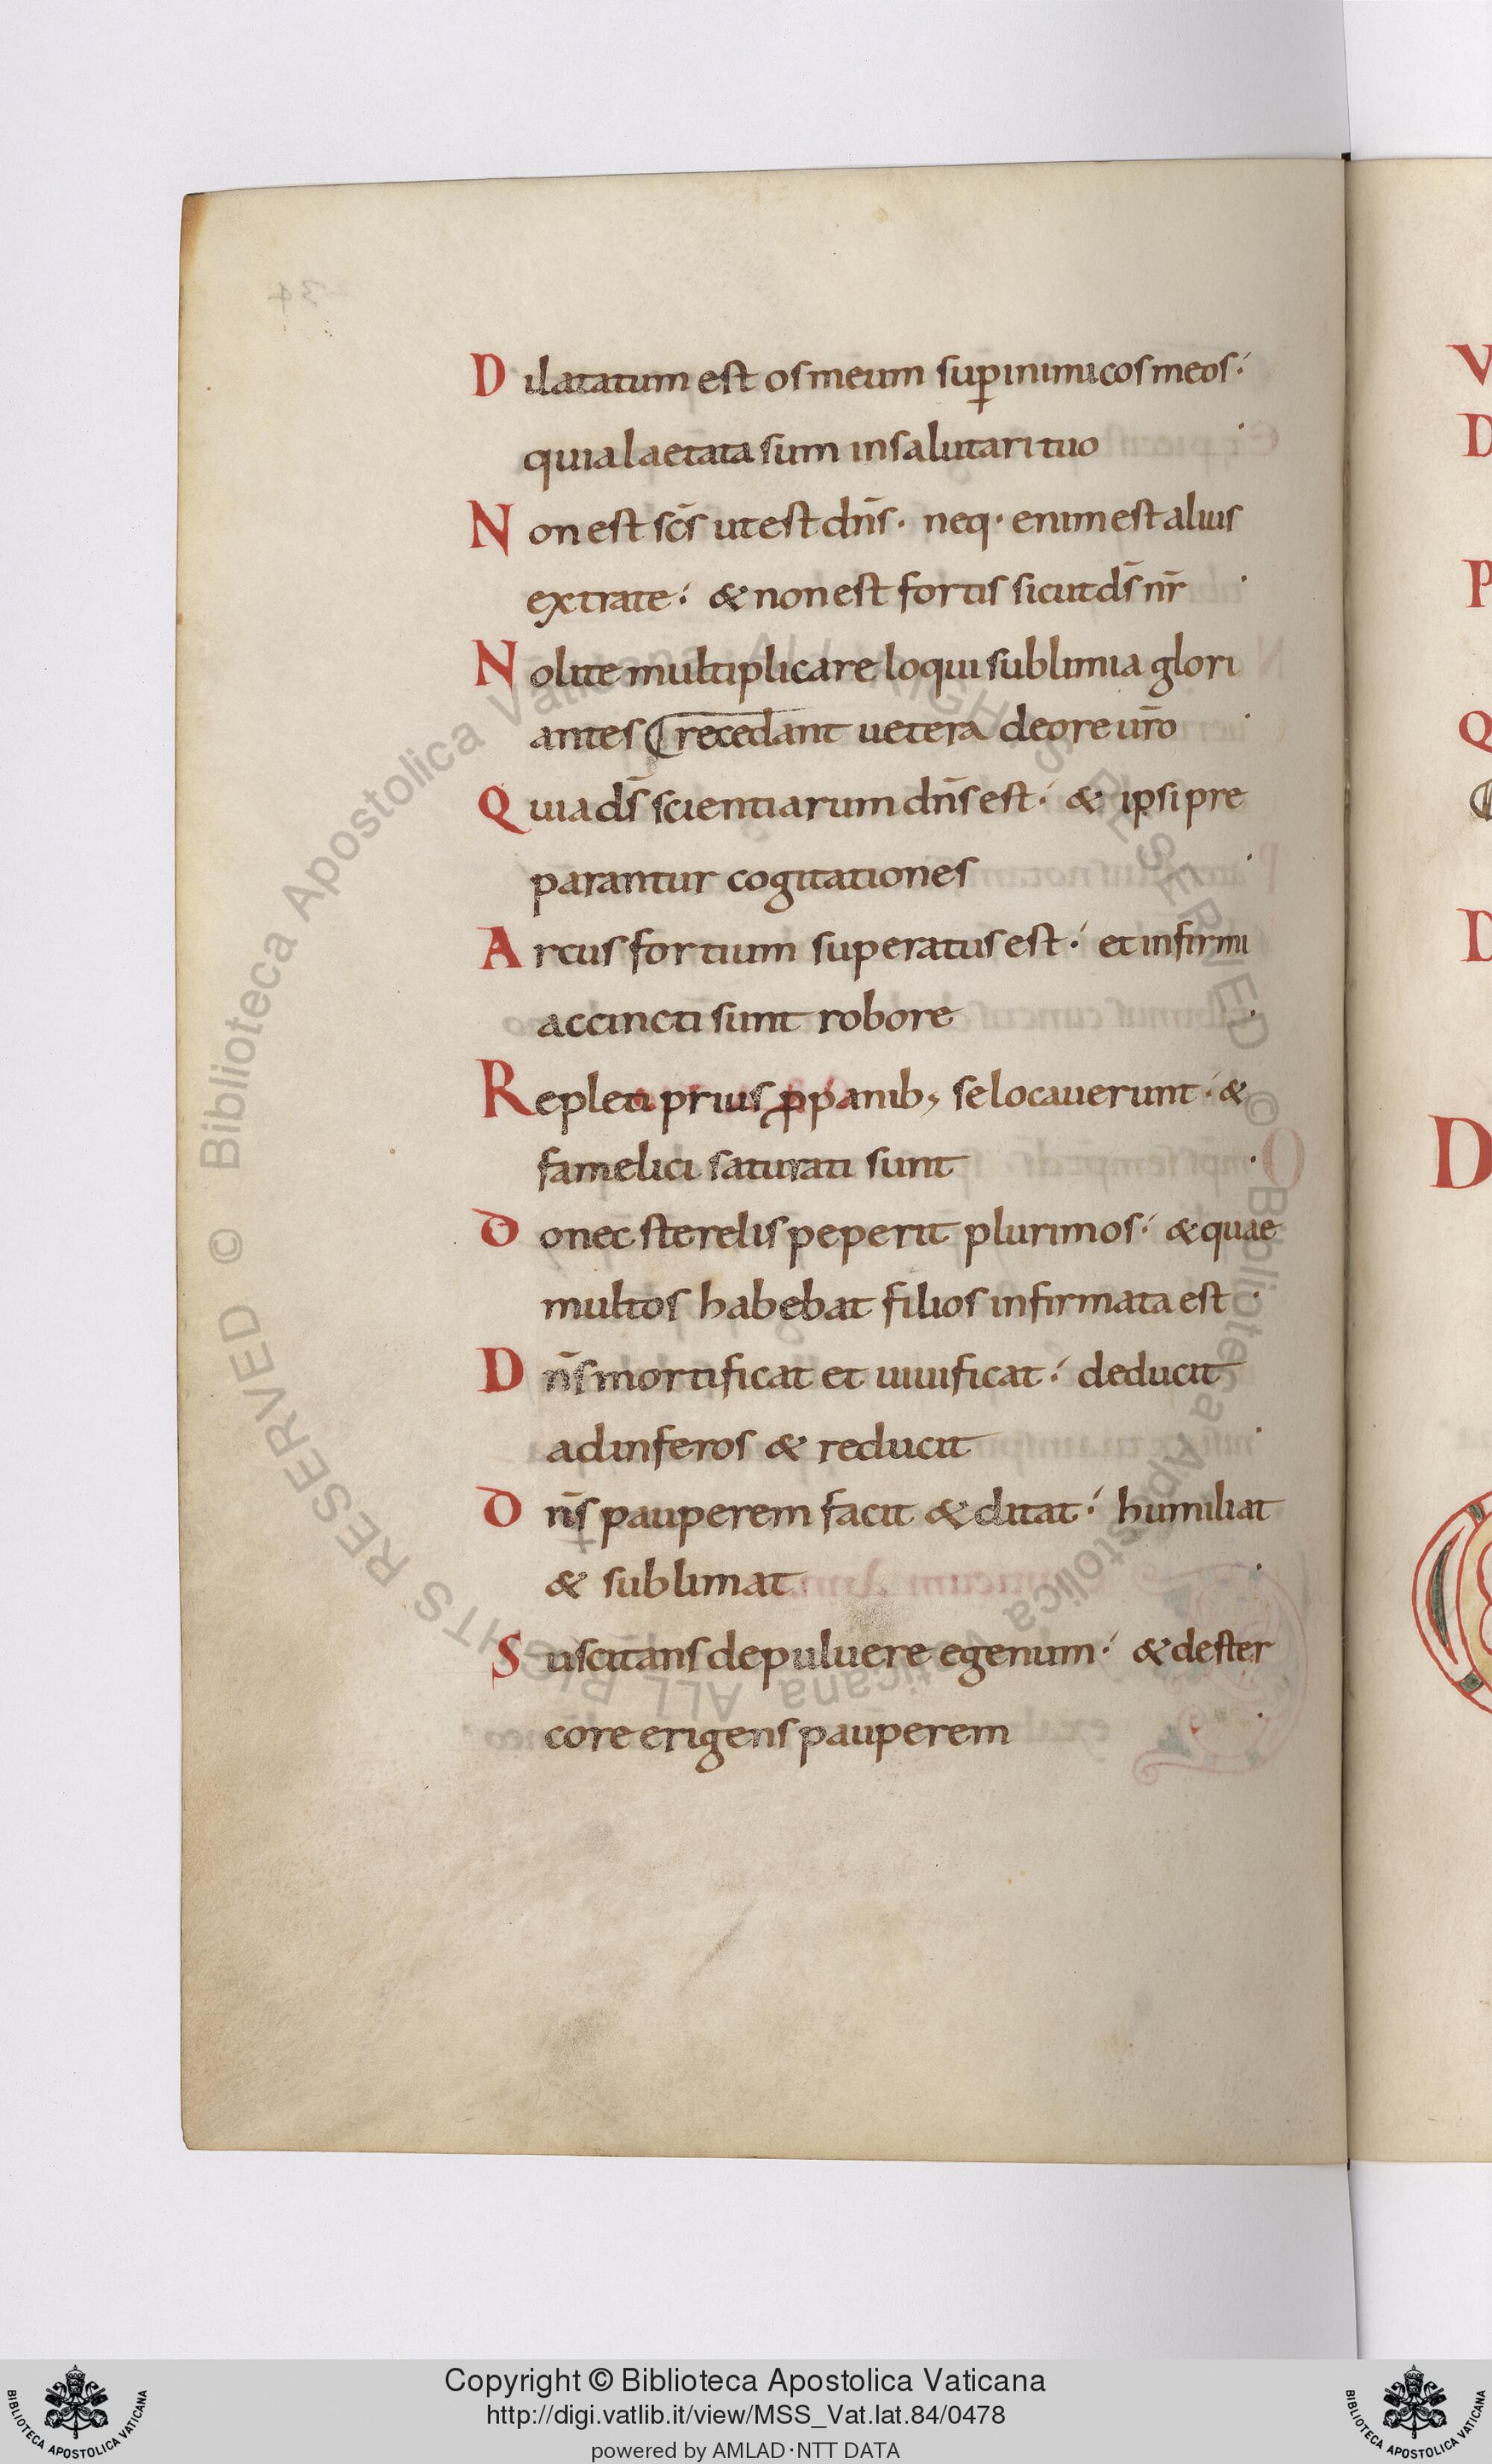 Dilatatum est os meum sup inimicos meos·
quia laetata sum in salutari tuo
Non est scs̄ ut est dn̄s· neq· enim est alius
extra te· & non est fortis sicut ds̄ nr̄
Nolite multiplicare loqui sublimia glori
antes recedant uetera de ore ur̄o
Quia ds̄ scientiarum dn̄s est· & ipsi pre
parantur cogitationes
Arcus fortium superatus est· et infirmi
accincti sunt robore
Repleti prius ꝓ panib; se locauerunt· &
famelici saturati sunt
Donec sterelis peperit plurimos· & quae
multos habebat filios infirmata est
Dn̄s mortificat et uiuificat· deducit
ad inferos & reducit
Dn̄s pauperem facit & ditat· humiliat
& sublimat
Suscitans de puluere egenum· & de ster
core erigens pauperem
V
D
P
Q
D
D
© Biblioteca Apostolica Vaticana ALL RIGHTS RESERVED © Biblioteca Apostolica Vaticana ALL RIGHTS RESERVED
Copyright © Biblioteca Apostolica Vaticana
http://digi.vatlib.it/view/MSS_Vat.lat.84/0478
powered by AMLAD·NTT DATA
BIBLIOTECA APOSTOLICA VATICANA
BIBLIOTECA APOSTOLICA VATICANA